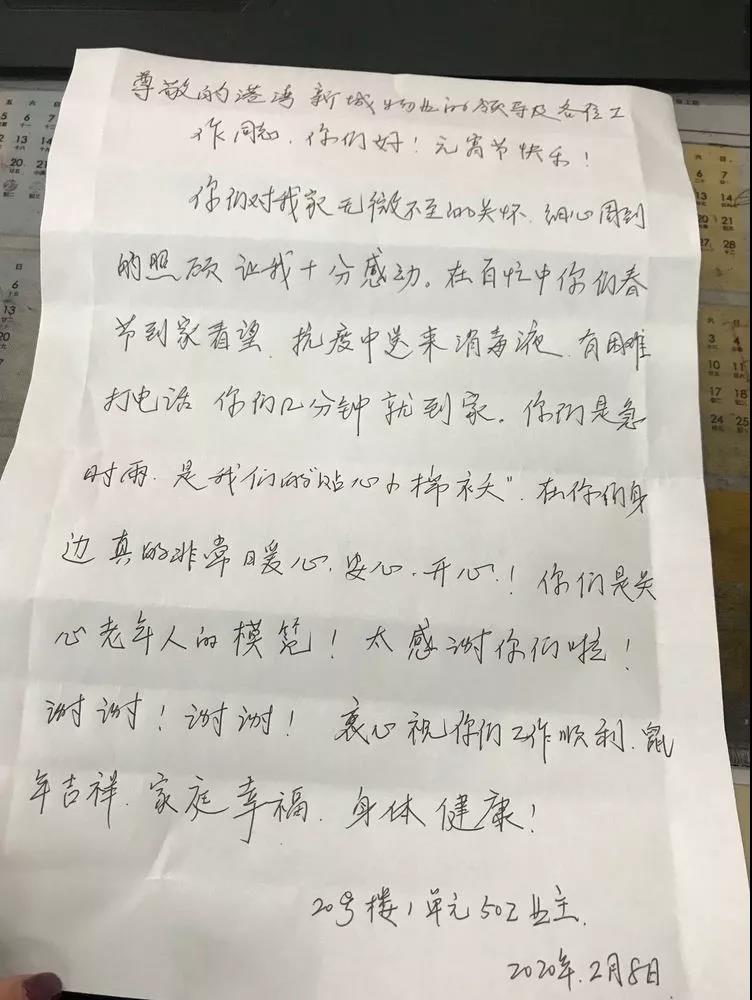 尊敬的港湾新城物业的领导及各位工
作同志，你们好！元宵节快乐！
你们对我家无微不至的关怀、细心周到
的照顾让我十分感动。在百忙中你们春
节到家看望、抗疫中送来消毒液、有困难
打电话你们几分钟就到家。你们是急
时雨、是我们的“贴心小棉袄”. 在你们身
边真的非常暖心、安心、开心！你们是关
心老年人的模范！太感谢你们啦！
谢谢！谢谢！衷心祝你们工作顺利、鼠
年吉祥、家庭幸福、身体健康！
20号楼1单元502业主.
2020年.2月8日